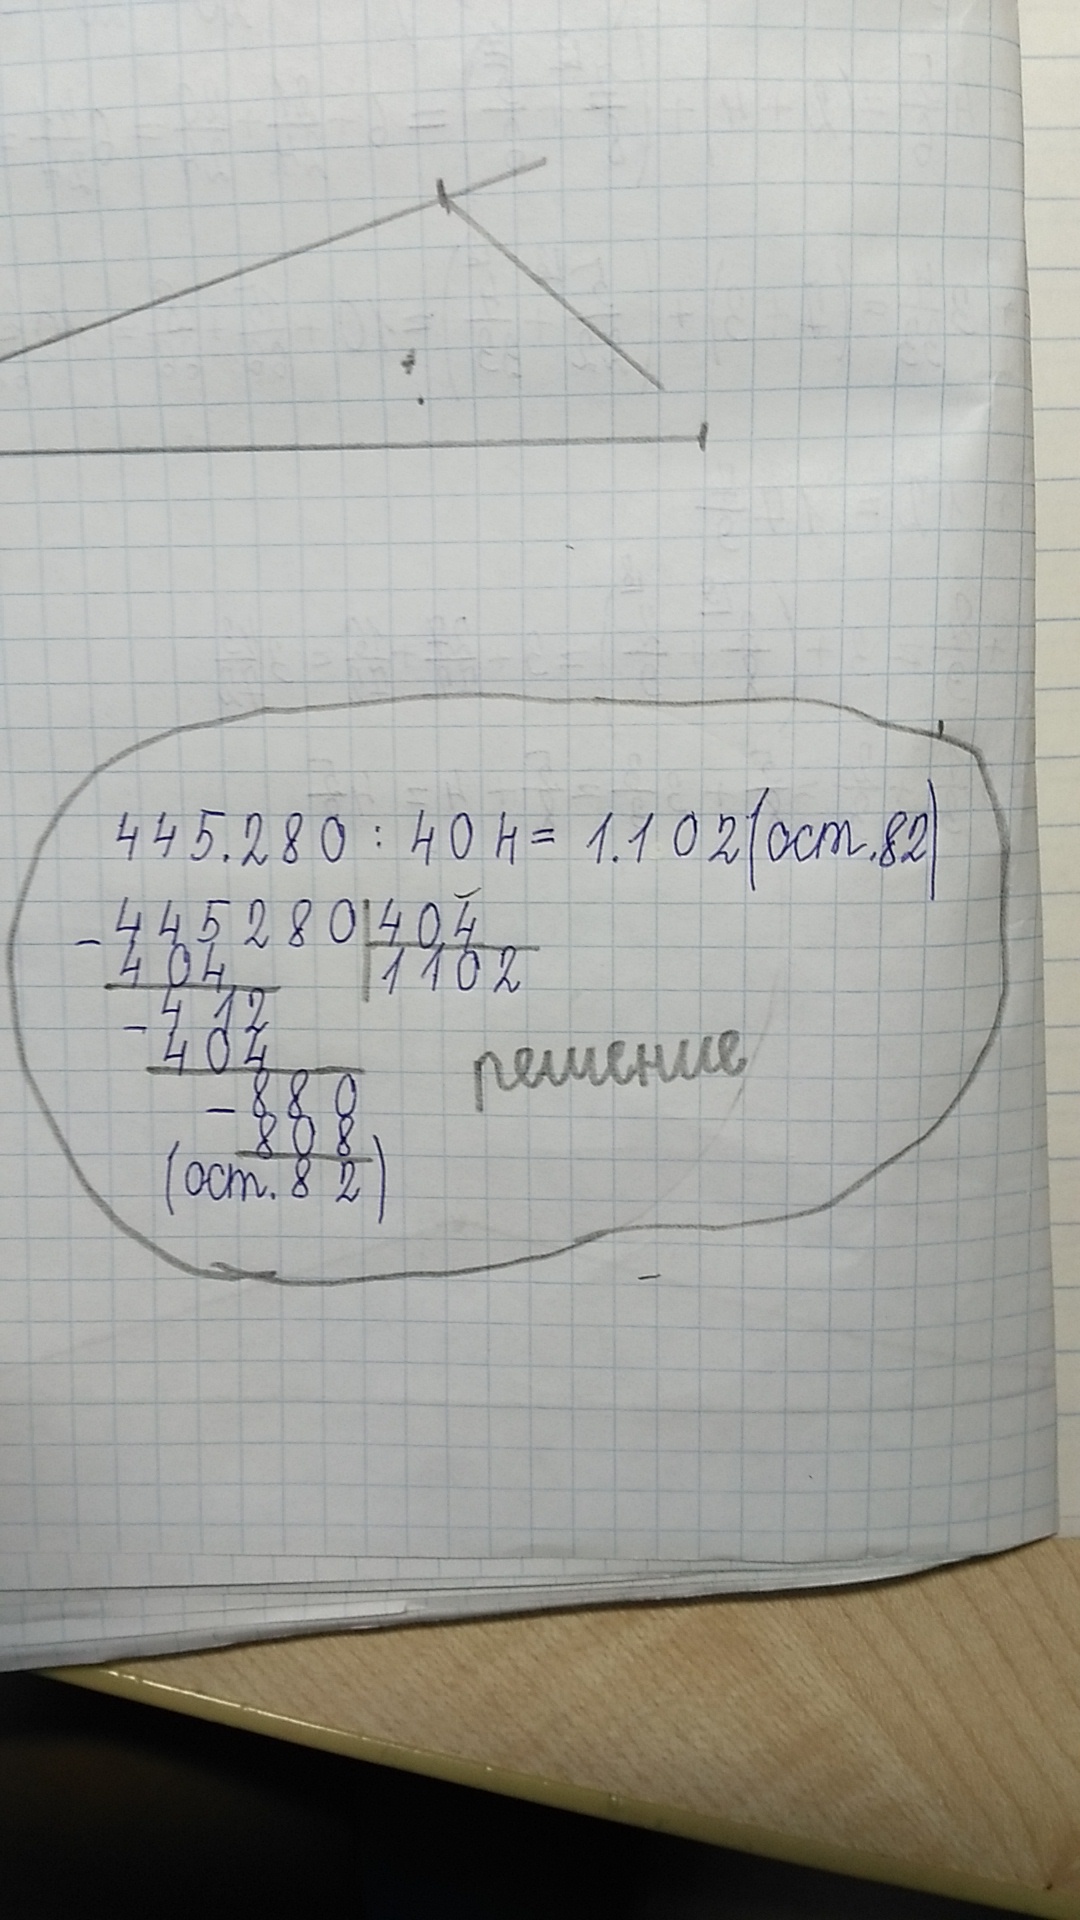 445.280 : 404 = 1.102 (ост. 82)
- 445280 | 404
404 | 1102
- 412
404
решение
- 880
808
(ост. 82)